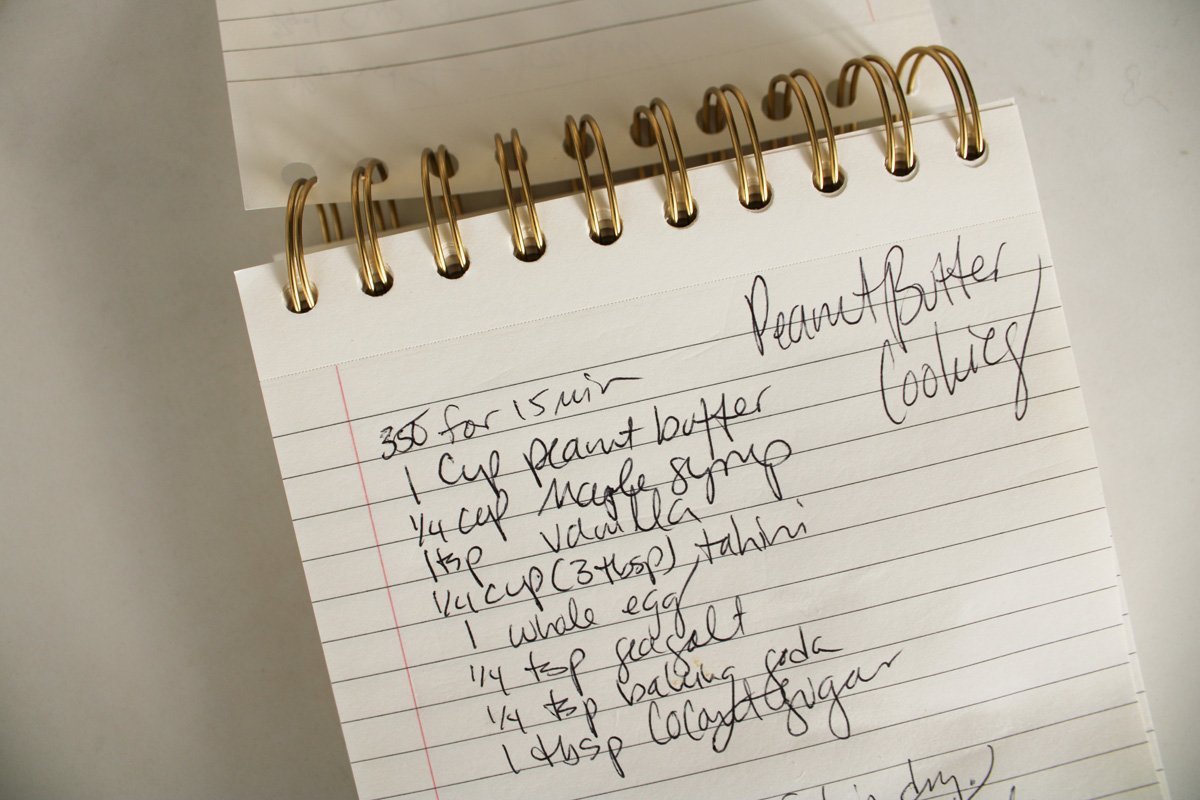 Peanut Butter
Cookies
350 for 15 min
1 Cup peanut butter
1/4 cup Maple syrup
1 tsp vanilla
1/4 cup (3 tbsp) tahini
1 whole egg
1/4 tsp sea salt
1/4 tsp baking soda
1 tbsp Coconut Sugar
in dry.)